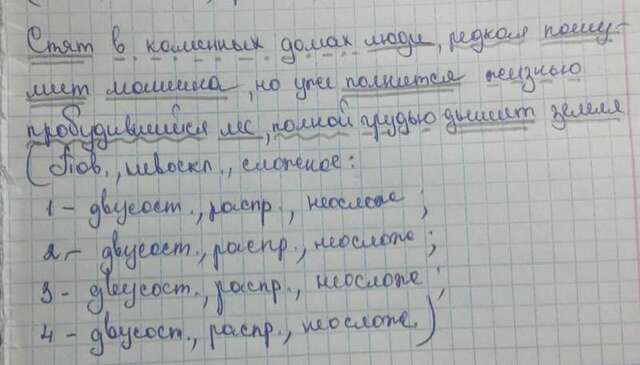 Спят в каменных домах люди, редкая пошу-
мит машина, но уже полнится жизнью
пробудившийся лес, полной грудью дышит земля
(Пов., невоскл., сложное:
1 - двусост., распр., неослож.;
2 - двусост., распр., неослож.;
3 - двусост., распр., неослож.;
4 - двусост., распр., неослож.)